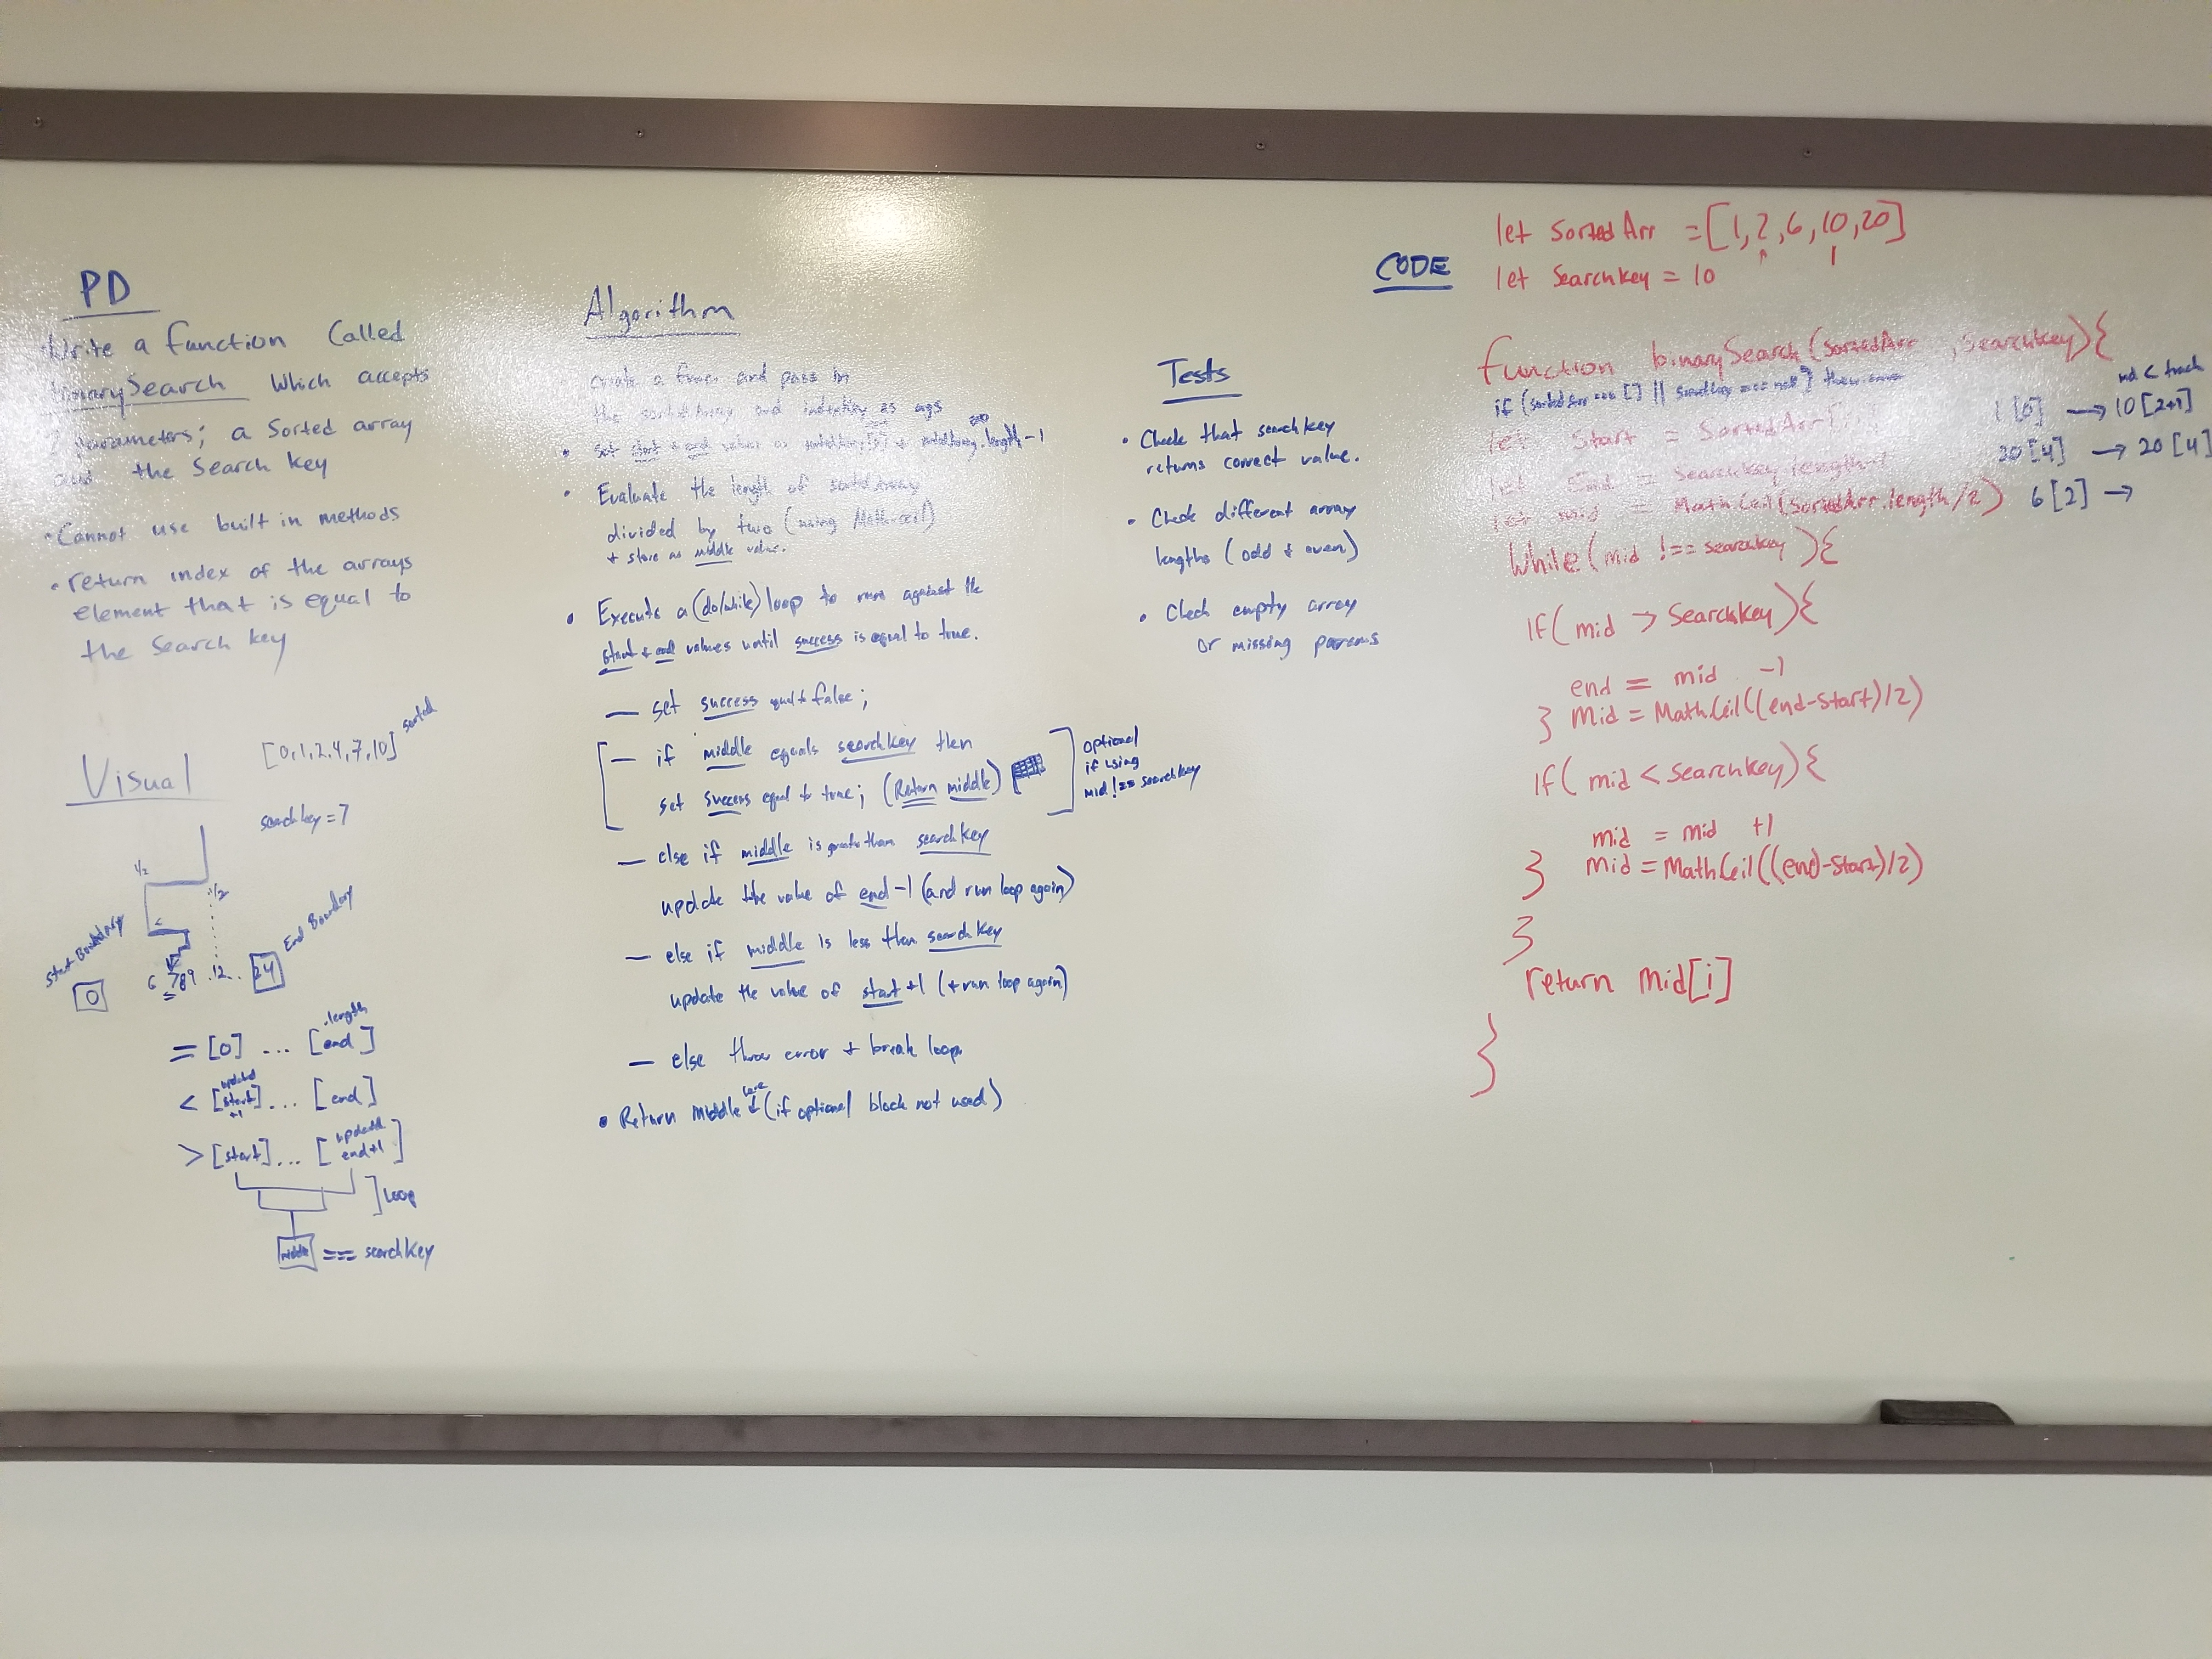 PD
Write a function Called
binarySearch which accepts
2 parameters; a Sorted array
and the Search key
• Cannot use built in methods
• return index of the arrays
element that is equal to
the Search key
Visual
[0,1,2,4,7,10] sorted
searchkey = 7
1/2
1/2
Start Boundary
End Boundary
0
6 789 .12.. 24
= [0] ... [end]
.length
< [start] ... [end]
updated
+1
> [start] ... [end+1]
update
] Loop
middle === searchkey
Algorithm
create a func and pass in
the sortedArray and as args
• set start + end values as .length-1
• Evaluate the length of sortedArray
divided by two (using Math.ceil)
+ store as middle value.
• Execute a (do/while) loop to run against the
start + end values until success is equal to true.
— set success equal to false;
— if middle equals searchkey then
set success equal to true; (Return middle)
optional
if using
mid !== searchkey
— else if middle is greater than searchkey
update the value of end -1 (and run loop again)
— else if middle is less then searchkey
update the value of start +1 (+ run loop again)
— else throw error + break loop
• Return middle (if optional block not used)
Tests
• Check that searchkey
returns correct value.
• Check different array
lengths (odd + even)
• Check empty array
or missing params
CODE
let SortedArr = [1,2,6,10,20]
let Searchkey = 10
function binarySearch(SortedArr, Searchkey){
if (sortedArr === [] ||
let Start = SortedArr[
let End = Searchkey.length
let mid = Math.Ceil(SortedArr.length/2)
while( mid !== searchkey ){
if( mid > Searchkey){
end = mid -1
} Mid = Math.Ceil((end-Start)/2)
if( mid < Searchkey){
mid = mid +1
} Mid = Math.Ceil((end-Start)/2)
}
return Mid[i]
}
1 [0] → 10 [2+1]
20 [4] → 20 [4]
6 [2] →